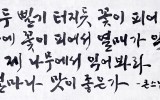 두 빨기 터지듯 꽃이 피어
에 꽃이 피어서 열매가 맺
제 나무에서 익어봐라
얼마나 맛이 좋은가